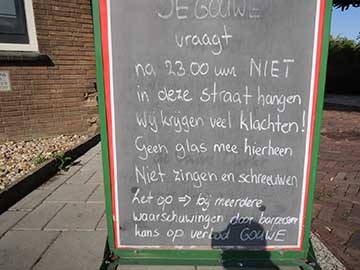 JE GOUWE
vraagt
na 23.00 uur NIET
in deze straat hangen
Wij krijgen veel klachten!
Geen glas mee hierheen
Niet zingen en schreeuwen
Let op => bij meerdere
waarschuwingen door barpersoneel
kans op verbod GOUWE